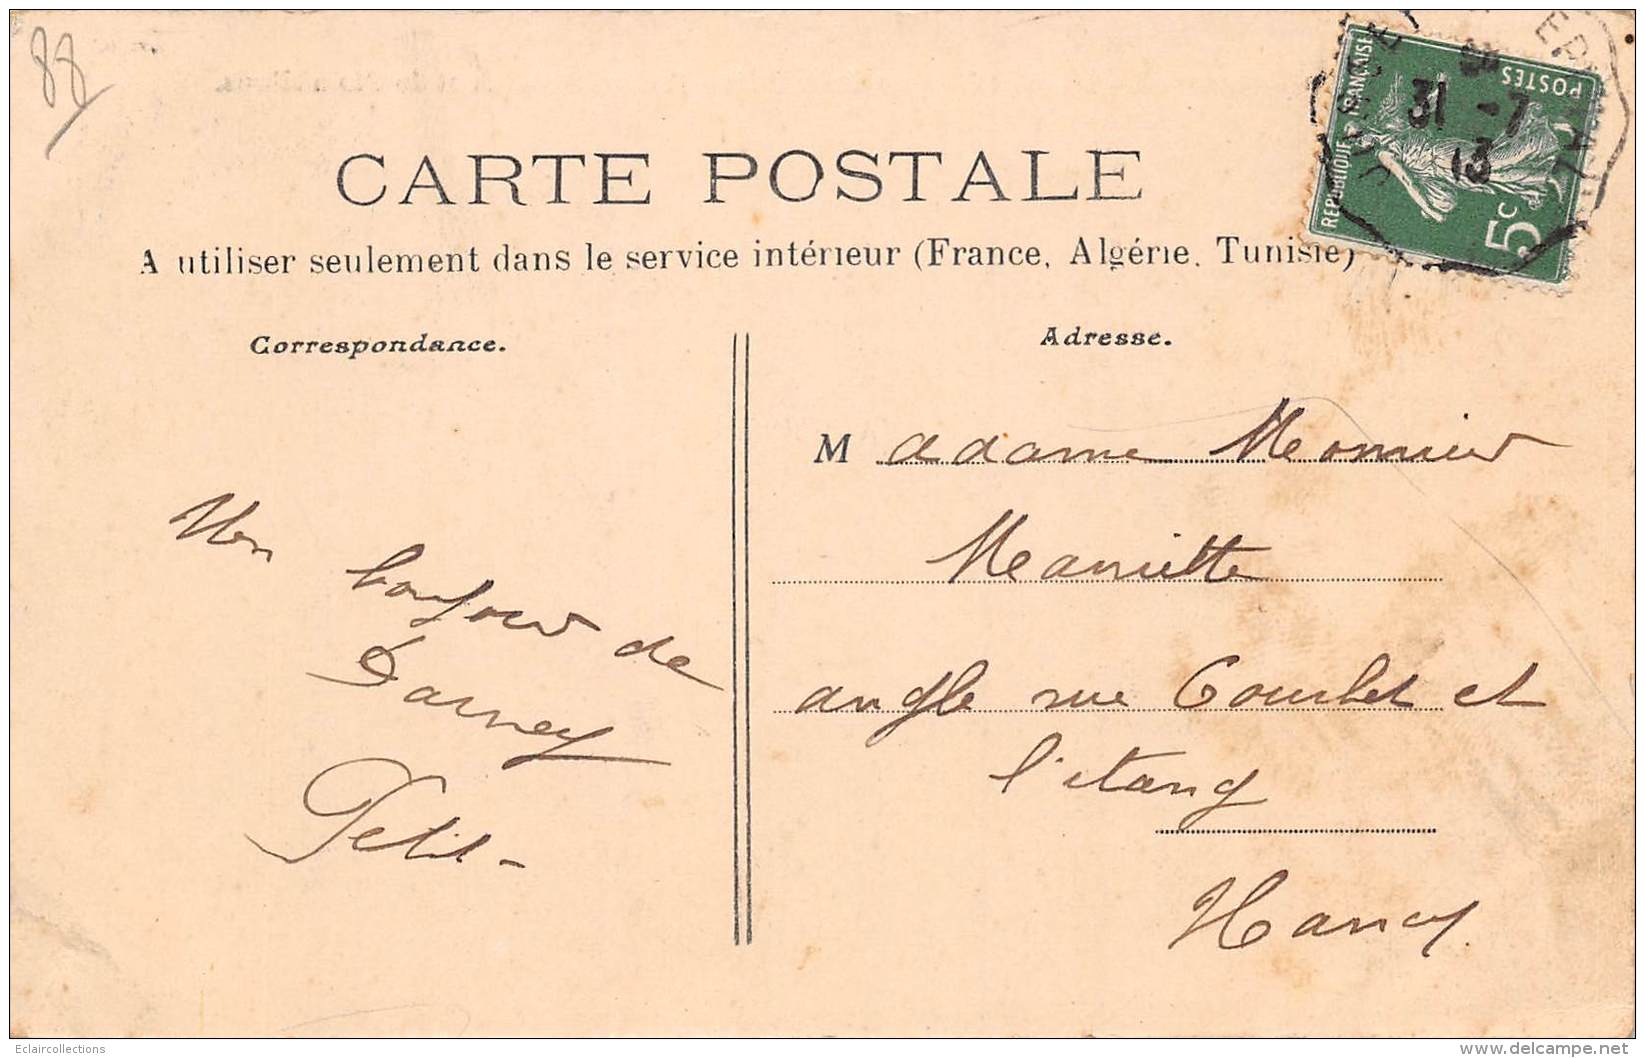 88
CARTE POSTALE
A utiliser seulement dans le service intérieur (France, Algérie, Tunisie)
REPUBLIQUE FRANÇAISE
POSTES
5c
31 -7
13
Correspondance.
Mon bonjour de
Darney
Petit
Adresse.
Madame Monnier
Mariette
angle rue Courbet et
l'étang
Nancy
Eclaircollections
delcampe.net